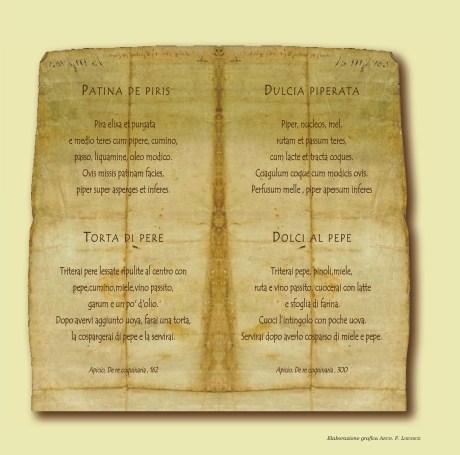 PATINA DE PIRIS
Pira elisa et purgata
e medio teres cum pipere, cumino,
passo, liquamine, oleo modico.
Ovis missis patinam facies,
piper super asperges et inferes.
DULCIA PIPERATA
Piper, nucleos, mel,
rutam et passum teres,
cum lacte et tracta coques.
Coagulum coque cum modicis ovis.
Perfusum melle , piper apersum inferes
TORTA DI PERE
Triterai pere lessate ripulite al centro con
pepe,cumino,miele,vino passito,
garum e un po' d'olio.
Dopo avervi aggiunto uova, farai una torta,
la cospargerai di pepe e la servirai.
Apicio, De re coquinaria , 162
DOLCI AL PEPE
Triterai pepe, pinoli,miele,
ruta e vino passito, cuocerai con latte
e sfoglia di farina.
Cuoci l'intingolo con poche uova.
Servirai dopo averlo cosparso di miele e pepe.
Apicio, De re coquinaria , 300
Elaborazione grafica Arch. F.